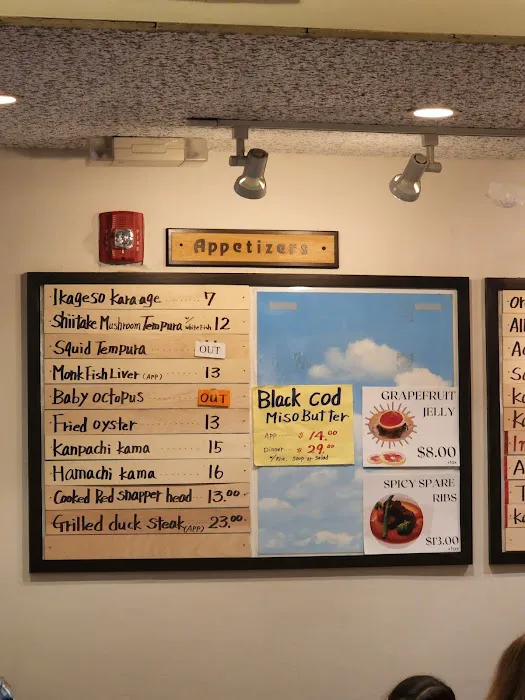 Appetizers
Ikageso karaage ........ 7
Shiitake Mushroom Tempura w/ white fish 12
Squid Tempura OUT
Monk Fish Liver (APP) ...... 13
Baby octopus OUT
Fried oyster ........ 13
Kanpachi kama ...... 15
Hamachi kama ...... 16
Cooked Red snapper head .. 13.00
Grilled duck steak (APP) 23.00
Black cod
Miso Butter
APP $14.00
Dinner $29.00
w/ Rice, Soup or Salad
GRAPEFRUIT
JELLY
$8.00
+tax
SPICY SPARE
RIBS
$13.00
+tax
FIRE